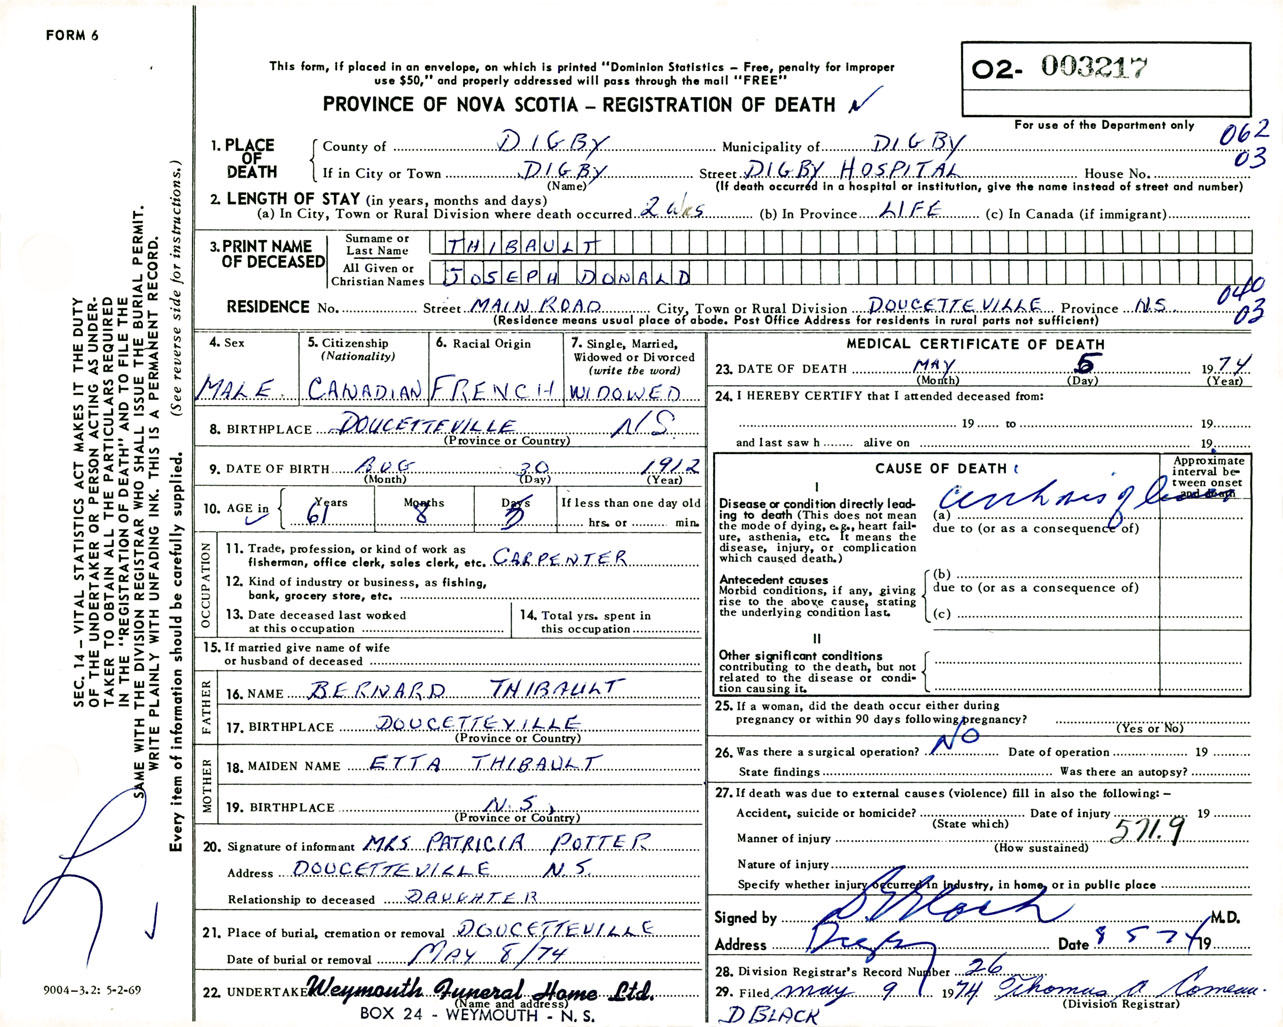 FORM 6
This form, if placed in an envelope, on which is printed "Dominion Statistics – Free, penalty for improper
use $50," and properly addressed will pass through the mail "FREE"
PROVINCE OF NOVA SCOTIA – REGISTRATION OF DEATH
02- 003217
For use of the Department only
062
03
1. PLACE OF DEATH
County of DIGBY Municipality of DIGBY
If in City or Town DIGBY Street DIGBY HOSPITAL House No.
(Name) (If death occurred in a hospital or institution, give the name instead of street and number)
2. LENGTH OF STAY (in years, months and days)
(a) In City, Town or Rural Division where death occurred 2 wks (b) In Province LIFE (c) In Canada (if immigrant)
3. PRINT NAME OF DECEASED
Surname or Last Name THIBAULT
All Given or Christian Names JOSEPH DONALD
040
03
RESIDENCE No. Street MAIN ROAD City, Town or Rural Division DOUCETTEVILLE Province N.S.
(Residence means usual place of abode. Post Office Address for residents in rural parts not sufficient)
4. Sex MALE
5. Citizenship (Nationality) CANADIAN
6. Racial Origin FRENCH
7. Single, Married, Widowed or Divorced (write the word) WIDOWED
8. BIRTHPLACE DOUCETTEVILLE N.S.
(Province or Country)
9. DATE OF BIRTH AUG 30 1912
(Month) (Day) (Year)
10. AGE in Years 61 Months 8 Days 5 If less than one day old
hrs. or min.
OCCUPATION
11. Trade, profession, or kind of work as
fisherman, office clerk, sales clerk, etc. CARPENTER
12. Kind of industry or business, as fishing,
bank, grocery store, etc.
13. Date deceased last worked
at this occupation
14. Total yrs. spent in
this occupation
15. If married give name of wife
or husband of deceased
FATHER
16. NAME BERNARD THIBAULT
17. BIRTHPLACE DOUCETTEVILLE
(Province or Country)
MOTHER
18. MAIDEN NAME ETTA THIBAULT
19. BIRTHPLACE N.S.
(Province or Country)
20. Signature of informant MRS PATRICIA POTTER
Address DOUCETTEVILLE N.S.
Relationship to deceased DAUGHTER
21. Place of burial, cremation or removal DOUCETTEVILLE
Date of burial or removal MAY 8/74
22. UNDERTAKER Weymouth Funeral Home Ltd.
(Name and address)
BOX 24 - WEYMOUTH - N. S.
MEDICAL CERTIFICATE OF DEATH
23. DATE OF DEATH MAY 5 1974
(Month) (Day) (Year)
24. I HEREBY CERTIFY that I attended deceased from:
19 to 19
and last saw h alive on 19
CAUSE OF DEATH
Approximate interval between onset and death
I
Disease or condition directly lead-
ing to death (This does not mean
the mode of dying, e.g., heart fail-
ure, asthenia, etc. It means the
disease, injury, or complication
which caused death.)
(a) cirrhosis of liver
due to (or as a consequence of)
Antecedent causes
Morbid conditions, if any, giving
rise to the above cause, stating
the underlying condition last.
(b)
due to (or as a consequence of)
(c)
II
Other significant conditions
contributing to the death, but not
related to the disease or condi-
tion causing it.
25. If a woman, did the death occur either during
pregnancy or within 90 days following pregnancy?
(Yes or No)
26. Was there a surgical operation? NO Date of operation 19
State findings Was there an autopsy?
27. If death was due to external causes (violence) fill in also the following: –
Accident, suicide or homicide? Date of injury 19
(State which)
Manner of injury 571.9
(How sustained)
Nature of injury
Specify whether injury occurred in industry, in home, or in public place
Signed by Black M.D.
Address Digby Date 8 5 74 19
28. Division Registrar's Record Number 26
29. Filed may 9 1974 Thomas A Comeau
(Division Registrar)
D BLACK
SEC. 14 – VITAL STATISTICS ACT MAKES IT THE DUTY
OF THE UNDERTAKER OR PERSON ACTING AS UNDER-
TAKER TO OBTAIN ALL THE PARTICULARS REQUIRED
IN THE "REGISTRATION OF DEATH" AND TO FILE THE
SAME WITH THE DIVISION REGISTRAR WHO SHALL ISSUE THE BURIAL PERMIT.
WRITE PLAINLY WITH UNFADING INK. THIS IS A PERMANENT RECORD.
Every item of information should be carefully supplied. (See reverse side for instructions.)
9004-3.2: 5-2-69